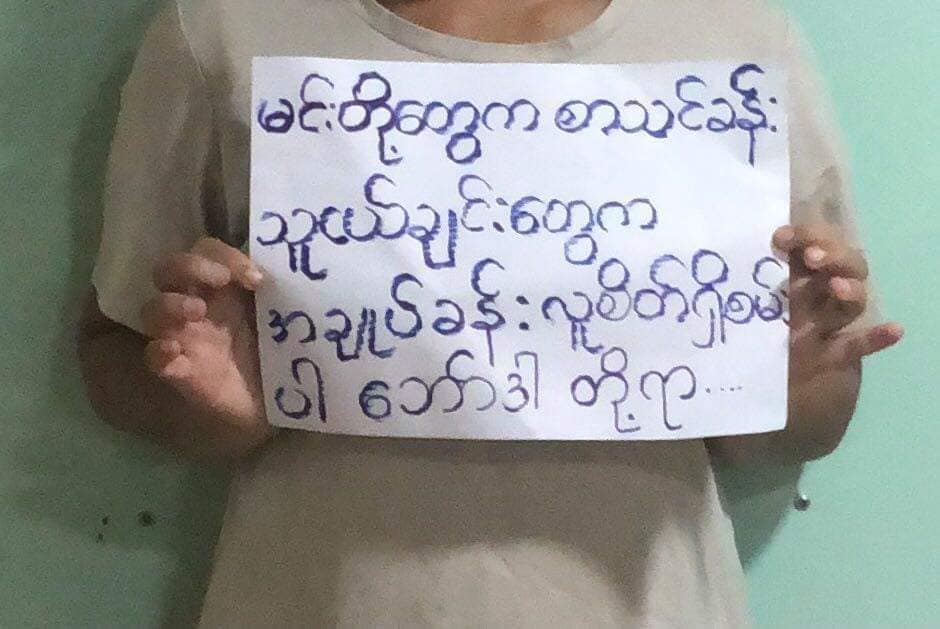 မင်းတို့တွေက စာသင်ခန်း
သူငယ်ချင်းတွေက
အချုပ်ခန်းလူစိတ်ရှိစမ်း
ပါ ဘော်ဒါ တို့ရာ....